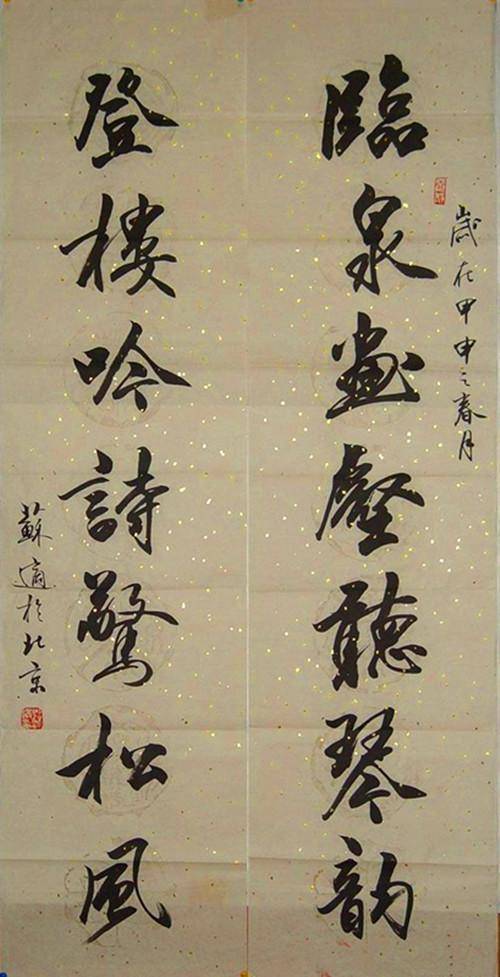 歲在甲申之春月
臨泉畫壑聽琴韵
登樓吟詩驚松風
蘇適於北京